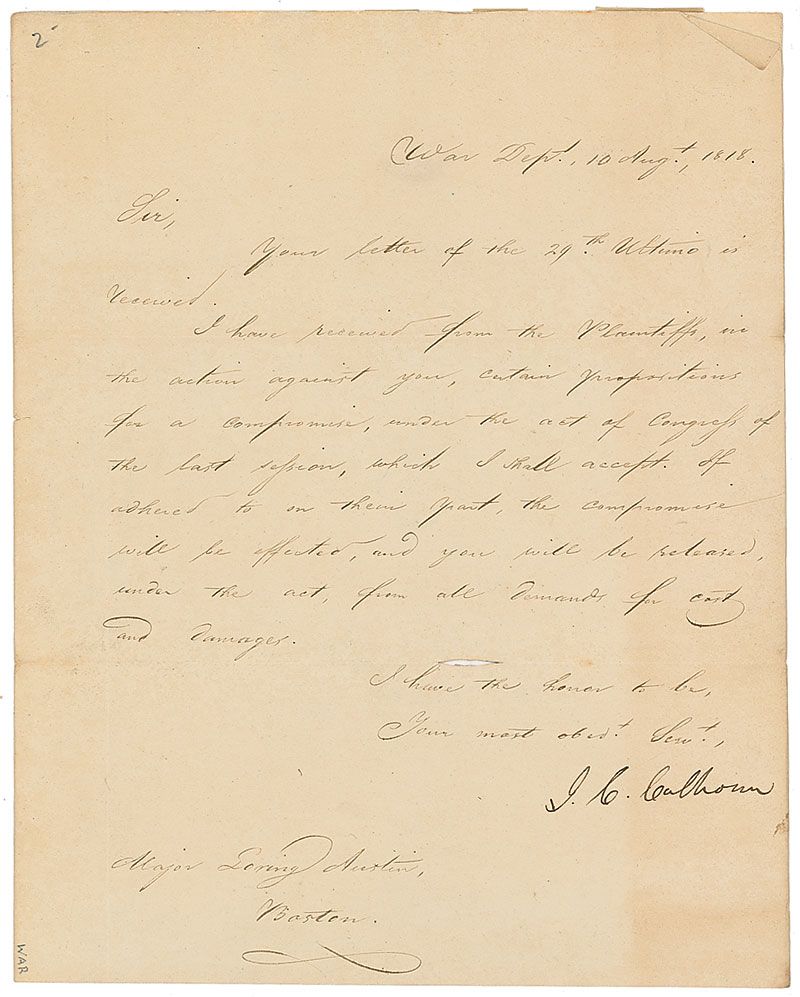 2
War Dept., 10 Augt., 1818.
Sir,
Your letter of the 29th. Ultimo is
received.
I have received from the Plaintiffs, in
the action against you, certain propositions
for a compromise, under the act of Congress of
the last session, which I shall accept. If
adhered to on their part, the compromise
will be effected, and you will be released,
under the act, from all demands for cost
and damages.
I have the honor to be,
Your most obedt. Servt.,
J. C. Calhoun
Major Loring Austin,
Boston.
WAR